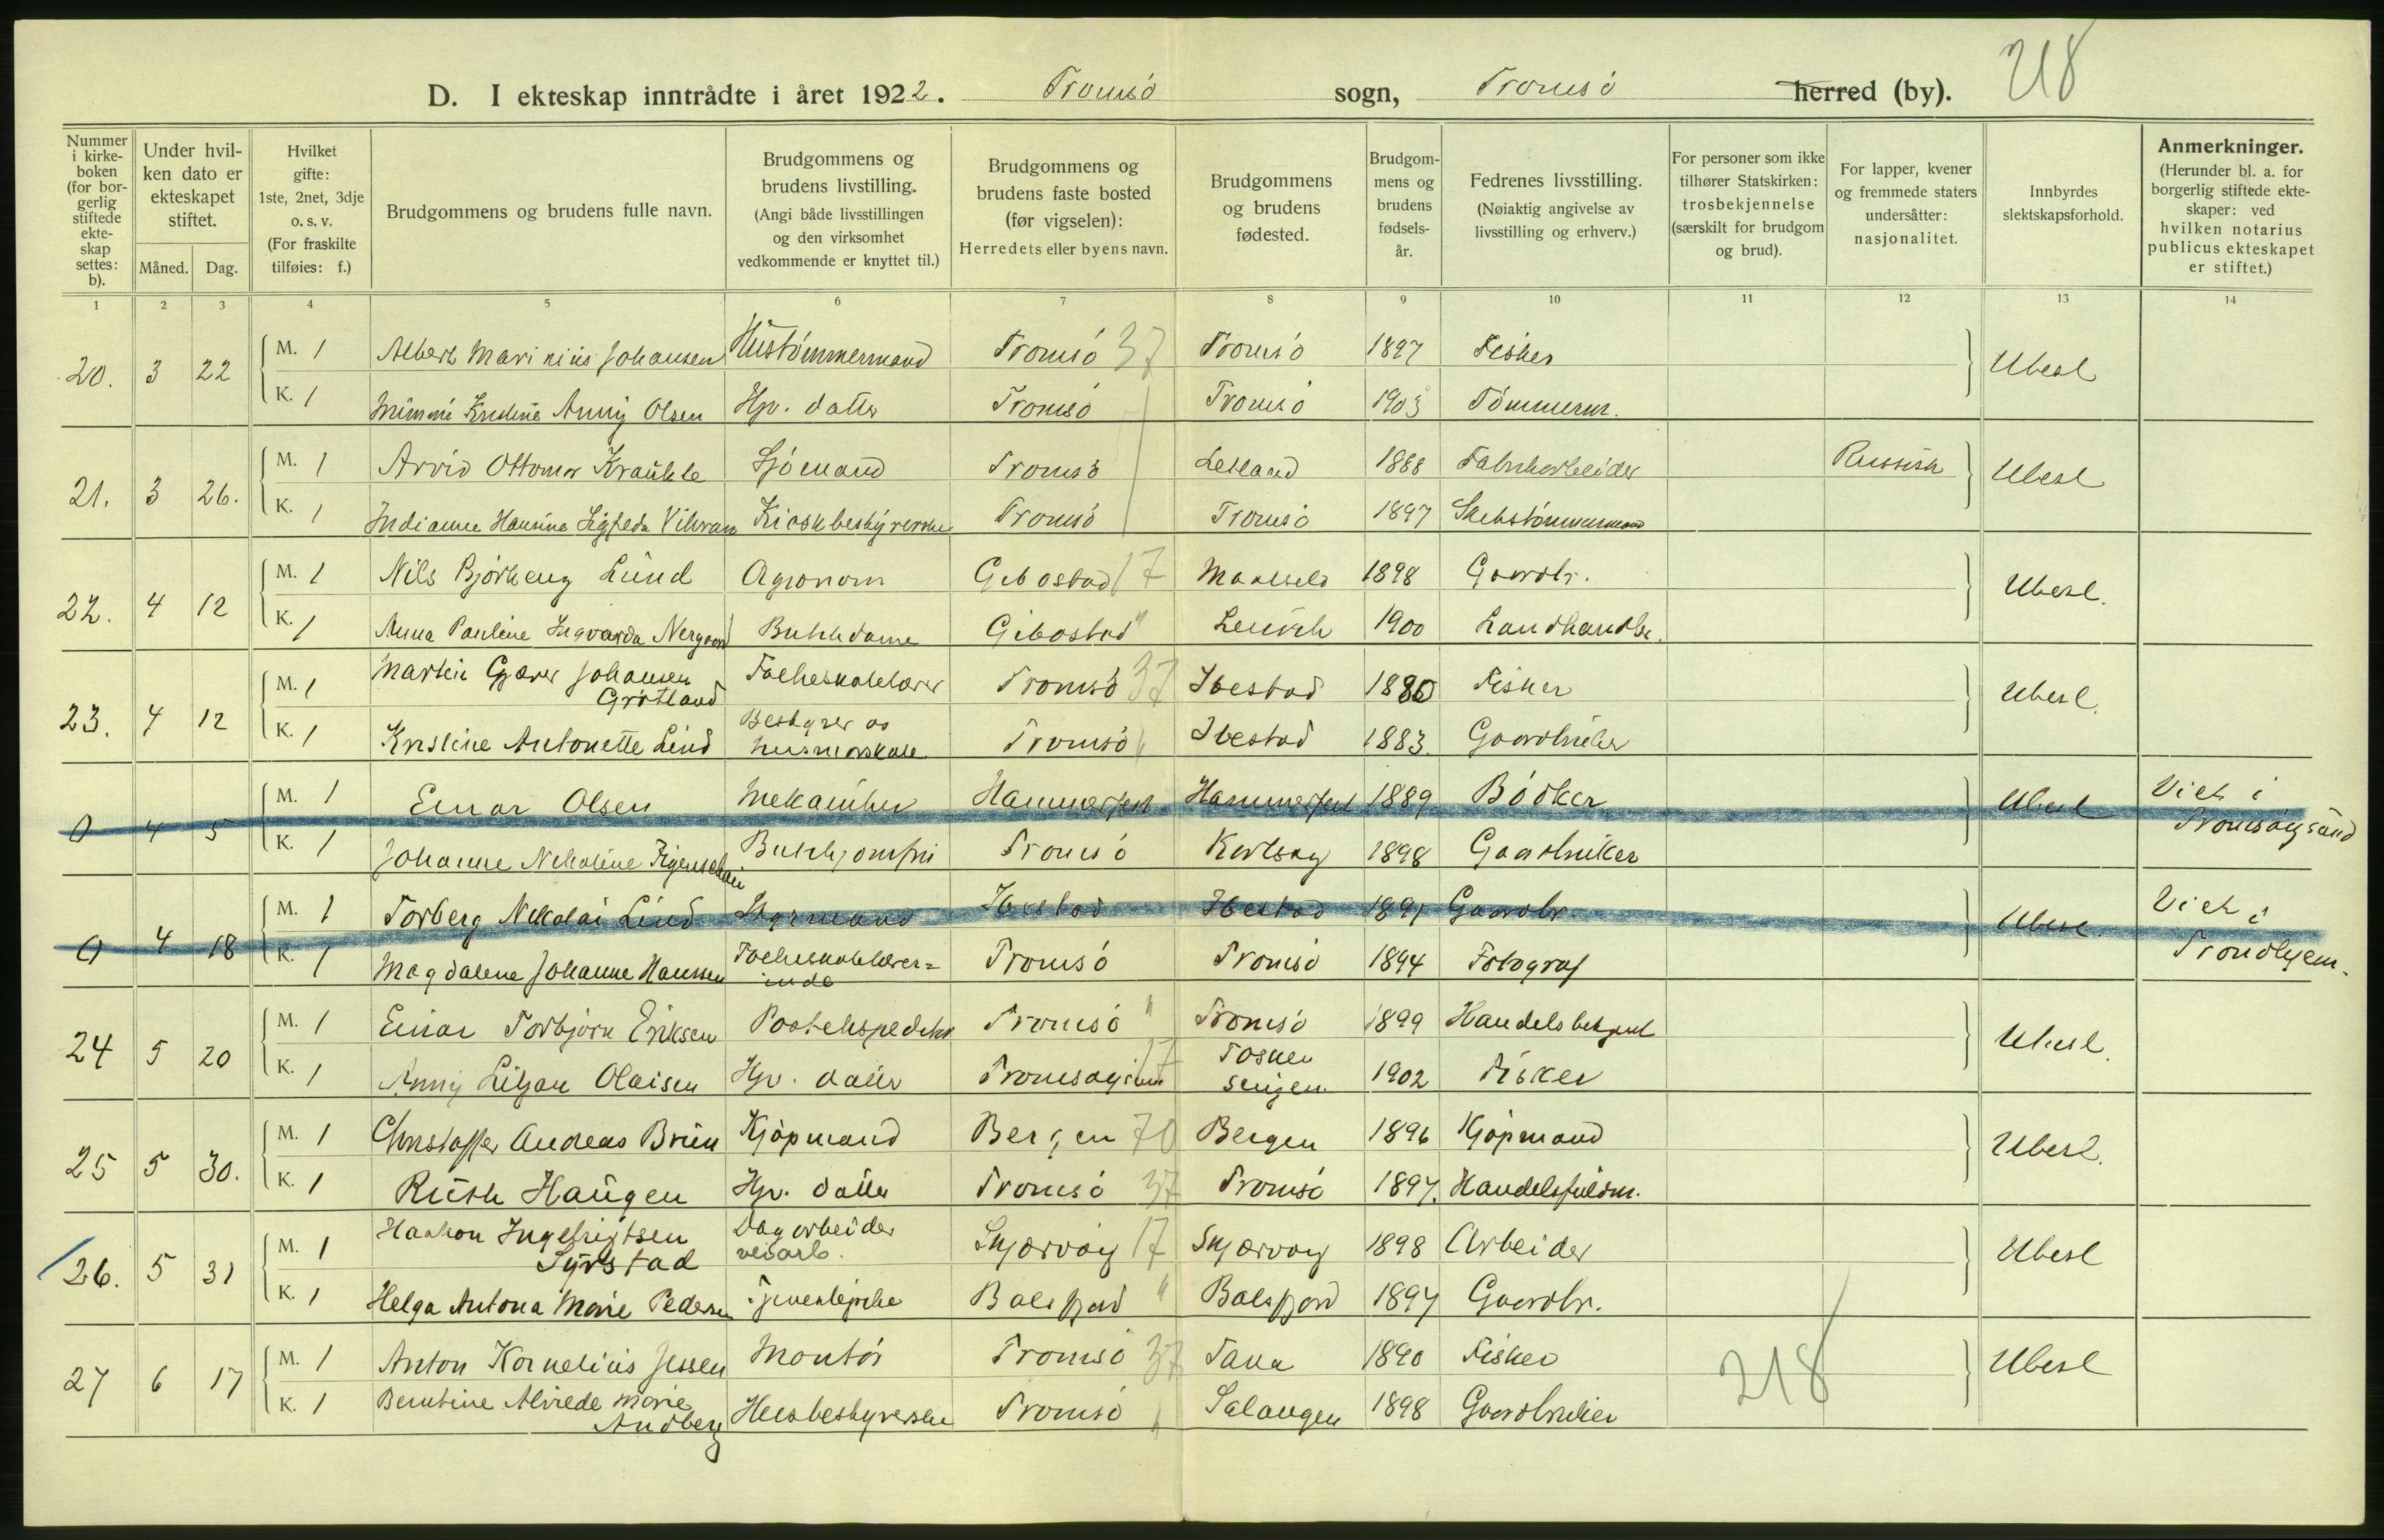 218
D. I ekteskap inntrådte i året 1922. Tromsö sogn, Tromsö herred (by).
Nummer i kirkeboken (for borgerlig stiftede ekteskap settes: b).
Under hvilken dato er ekteskapet stiftet.
Måned. Dag.
Hvilket gifte: 1ste, 2net, 3dje o. s. v. (For fraskilte tilføies: f.)
Brudgommens og brudens fulle navn.
Brudgommens og brudens livstilling. (Angi både livsstillingen og den virksomhet vedkommende er knyttet til.)
Brudgommens og brudens faste bosted (før vigselen): Herredets eller byens navn.
Brudgommens og brudens fødested.
Brudgommens og brudens fødselsår.
Fedrenes livsstilling. (Nøiaktig angivelse av livsstilling og erhverv.)
For personer som ikke tilhører Statskirken: trosbekjennelse (særskilt for brudgom og brud).
For lapper, kvener og fremmede staters undersåtter: nasjonalitet.
Innbyrdes slektskapsforhold.
Anmerkninger. (Herunder bl. a. for borgerlig stiftede ekteskaper: ved hvilken notarius publicus ekteskapet er stiftet.)
1 2 3 4 5 6 7 8 9 10 11 12 13 14
20. 3 22 M. 1 Albert Marinius Johansen Hustömmermand Tromsö 37 Tromsö 1897 Fisker Ubesl
K. 1 Mimmi Kristine Anny Olsen Hjv. datter Tromsö Tromsö 1903 Tömmerm.
21. 3 26. M. 1 Arvid Ottomar Sjömand Tromsö Letland 1888 Fabrikarbeider Russisk Ubesl
K. 1 Indianne Hansine Kioskbestyrerske Tromsö Tromsö 1897 Skibstömmermand
22. 4 12 M. 1 Nils Lund Agronom Gibostad 17 Maalselv 1898 Gaardbr. Ubesl.
K. 1 Anna Pauline Ingvarda Nergaard Butikdame Gibostad " Lenvik 1900 Landhandler.
23. 4 12 M. 1 Martin Johansen Folkeskolelærer Tromsö 37 Ibestad 1880 Fisker Ubesl.
Grötland
K. 1 Kristine Antonette Lind Bestyrer av husmorskole Tromsö Ibestad 1883. Gaardbruker
0 4 5 M. 1 Einar Olsen Mekaniker Hammerfest Hammerfest 1889 Bödker Ubesl Viet i
Tromsöysund
K. 1 Johanne Nikoline Butikjomfru Tromsö Karlsöy 1898 Gaardbruker
0 4 18 M. 1 Torberg Nikolai Lind Styrmand Ibestad Ibestad 1891 Gaardbr. Ubesl. Viet i
Trondhjem.
K. 1 Magdalene Johanne Hanssen Folkeskolelærerinde Tromsö Tromsö 1894 Fotograf
24 5 20 M. 1 Einar Torbjörn Eriksen Postekspeditör Tromsö " Tromsö 1899 Ubesl.
K. 1 Anny Liljan Olaisen Hjv. datter Tromsöysund 17 Tosken Senjen 1902 Fisker
25 5 30. M. 1 Christoffer Andreas Brun Kjöpmand Bergen 70 Bergen 1896 Kjöpmand Ubesl.
K. 1 Ruth Haugen Hjv. datter Tromsö 37 Tromsö 1897. Handelsfuldm.
26. 5 31 M. 1 Haakon Ingebrigtsen Dagarbeider Skjærvöy 17 Skjærvöy 1898 Arbeider Ubesl
Sürstad veiarb.
K. 1 Helga Antona Marie Pedersen Tjenestepike Balsfjord " Balsfjord 1897 Gaardbr.
27 6 17 M. 1 Anton Kornelius Jessen Montör Tromsö 37 Tana 1890 Fisker Ubesl
K. 1 Berntine Alviede Marie Husbestyrerske Tromsö Salangen 1898 Gaardbruker
Andberg
218